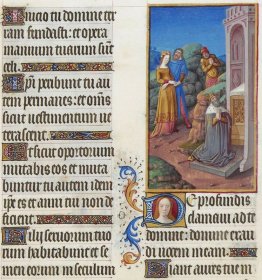 Inicio tu domine ter
ram fundasti: et opera
manuum tuarum sunt
celi.
Ipi peribunt tu au
tem permanes: et om̃s
sicut uestimentum ue
terascent.
Et sicut opertorium
mutabis eos et muta
buntur tu autem idem
ipse es et anni tui non de
ficient.
Filij seruorum tuo
rum habitabunt et se
men eorum in seculum
De profundis
clamaui ad te
domine: domine exau
di uocem meam.